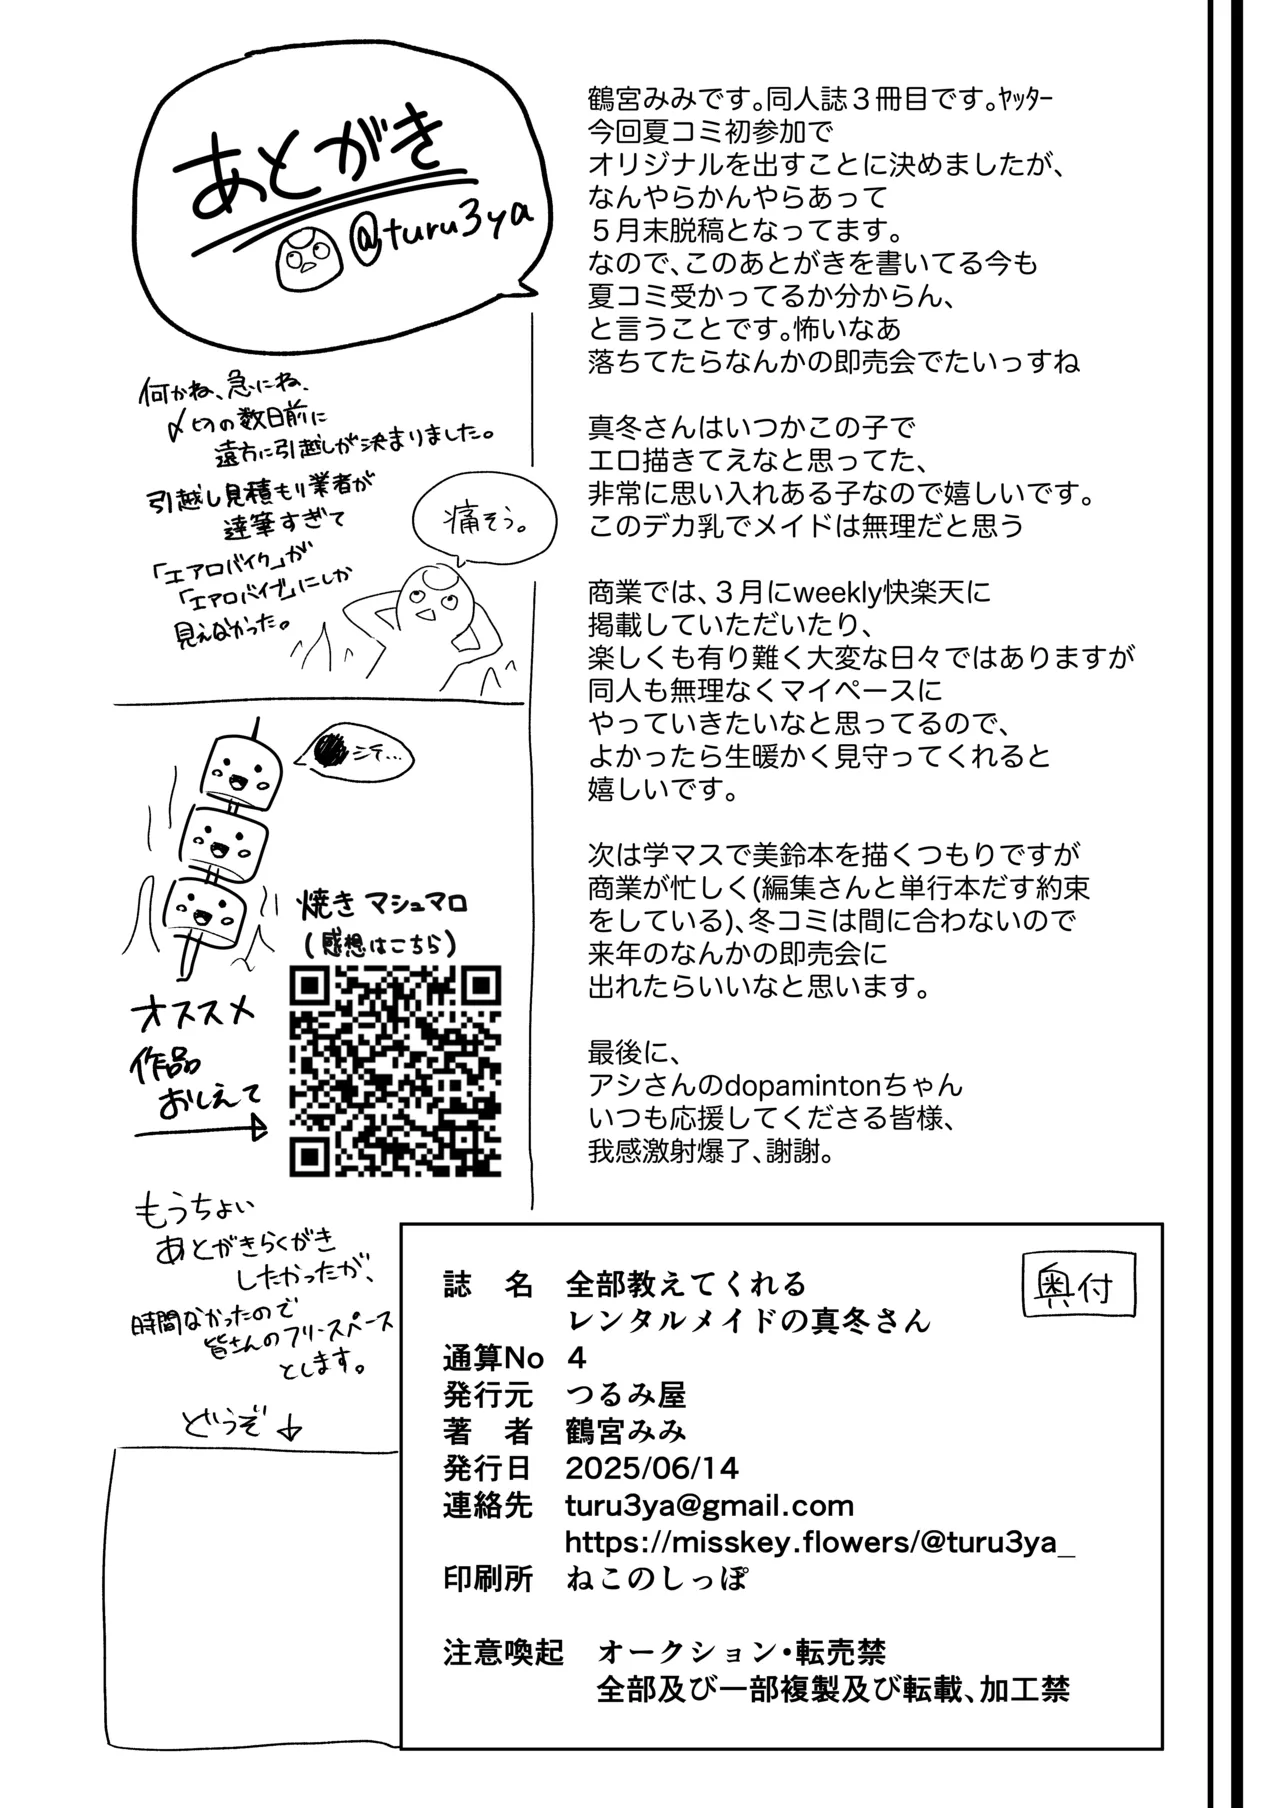 あとがき
@turu3ya
鶴宮みみです。同人誌３冊目です。ﾔｯﾀｰ
今回夏コミ初参加で
オリジナルを出すことに決めましたが、
なんやらかんやらあって
５月末脱稿となってます。
なので、このあとがきを書いてる今も
夏コミ受かってるか分からん、
と言うことです。怖いなあ
落ちてたらなんかの即売会でたいっすね
真冬さんはいつかこの子で
エロ描きてえなと思ってた、
非常に思い入れある子なので嬉しいです。
このデカ乳でメイドは無理だと思う
商業では、３月にweekly快楽天に
掲載していただいたり、
楽しくも有り難く大変な日々ではありますが
同人も無理なくマイペースに
やっていきたいなと思ってるので、
よかったら生暖かく見守ってくれると
嬉しいです。
次は学マスで美鈴本を描くつもりですが
商業が忙しく(編集さんと単行本だす約束
をしている)、冬コミは間に合わないので
来年のなんかの即売会に
出れたらいいなと思います。
最後に、
アシさんのdopamintonちゃん
いつも応援してくださる皆様、
我感激射爆了、謝謝。
何かね、急にね、
〆切の数日前に
遠方に引越しが決まりました。
引越し見積もり業者が
達筆すぎて
「エアロバイク」が
「エアロバイブ」にしか
見えなかった。
痛そう。
シテ…
焼きマシュマロ
(感想はこちら)
オススメ
作品
おしえて
もうちょい
あとがきらくがき
したかったが、
時間なかったので
皆さんのフリースペース
とします。
どうぞ↓
奥付
誌　名　全部教えてくれる
レンタルメイドの真冬さん
通算No　4
発行元　つるみ屋
著　者　鶴宮みみ
発行日　2025/06/14
連絡先　turu3ya@gmail.com
https://misskey.flowers/@turu3ya_
印刷所　ねこのしっぽ
注意喚起　オークション・転売禁
全部及び一部複製及び転載、加工禁